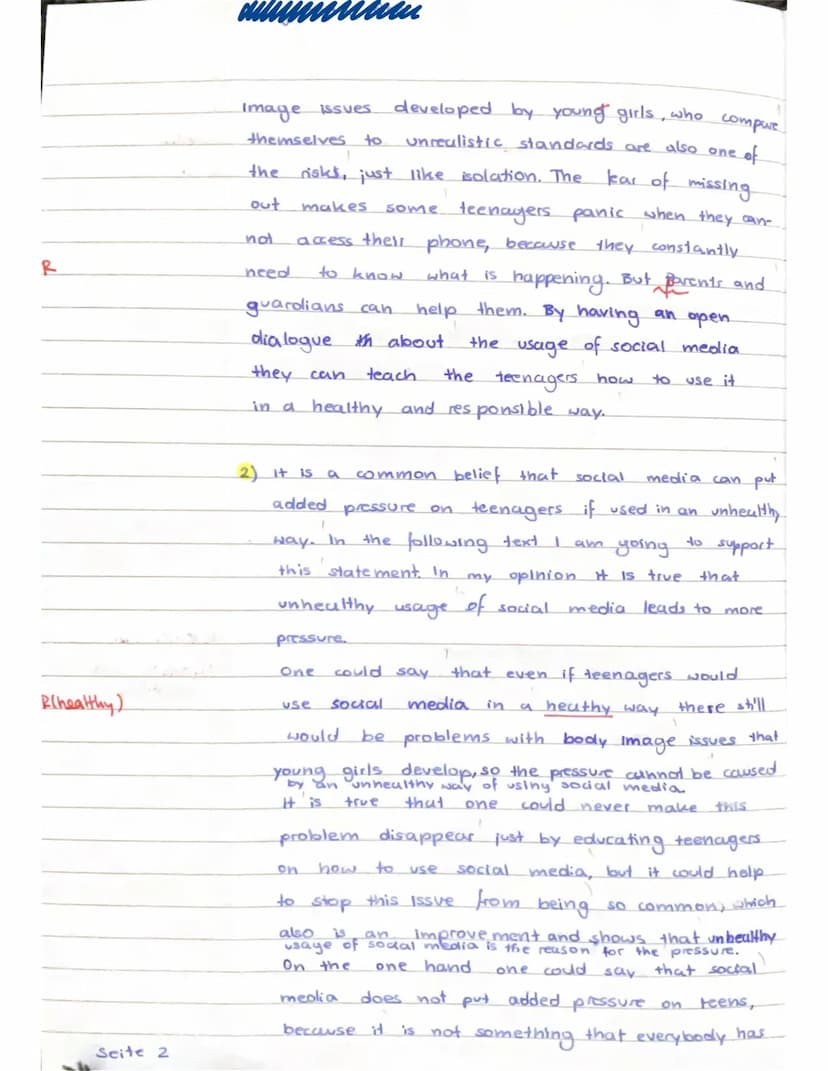 Image issues developed by young girls, who compare
themselves to unrealistic standards are also one of
the risks, just like isolation. The fear of missing
out makes some teenagers panic when they can-
not access their phone, because they constantly
R need to know what is happening. But Parents and
guardians can help them. By having an open
dialogue about the usage of social media
they can teach the teenagers how to use it
in a healthy and responsible way.
2) It is a common belief that social media can put
added pressure on teenagers if used in an unhealthy
way. In the following text I am going to support
this statement. In my opinion it is true that
unhealthy usage of social media leads to more
pressure.
One could say that even if teenagers would
R(healthy) use social media in a heathy way there still
would be problems with body image issues that
young girls develop, so the pressure cannot be caused
by an unhealthy way of using social media.
It is true that one could never make this
problem disappear just by educating teenagers
on how to use social media, but it could help
to stop this issue from being so common, which
also is an improvement and shows that unhealthy
usage of social media is the reason for the pressure.
On the one hand one could say that social
media does not put added pressure on teens,
because it is not something that everybody has
Seite 2